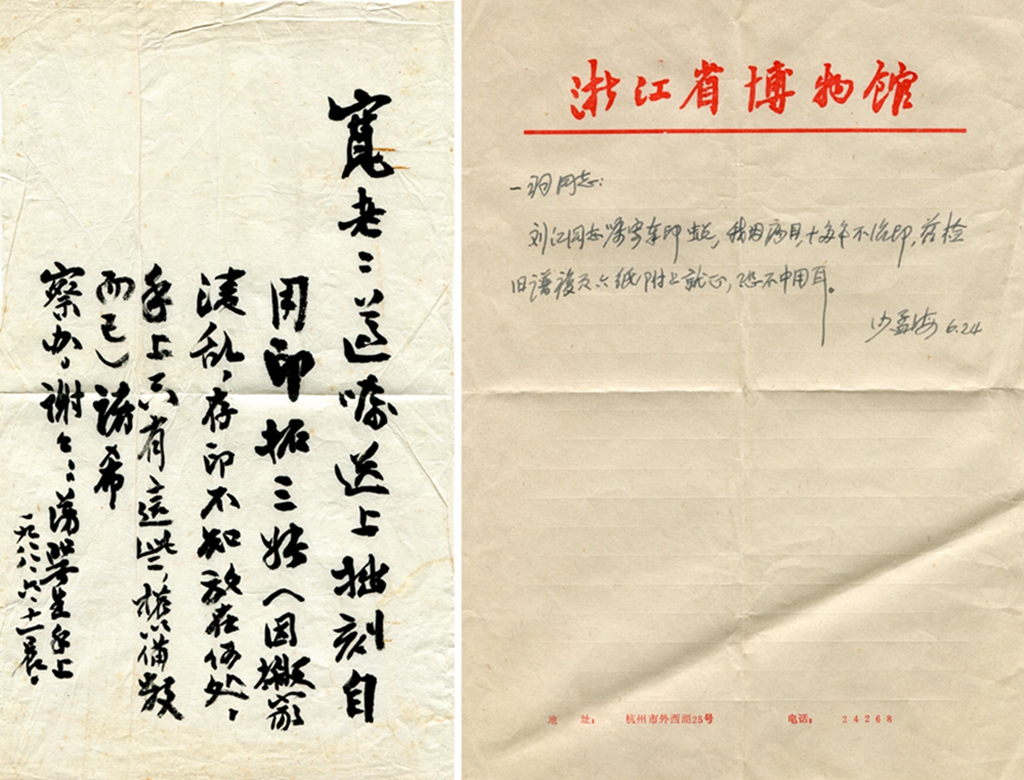 寬老：遵嘱送上拙刻自
用印拓三紙（因搬家
淩乱，存印不知放在何处，
手上只有這些，權備数
而已）諸希
察办，谢々：生手上
一九八八、六、十一晨。
浙江省博物馆
一同志：
刘江同志嘱寄奉印蜕，我因病目，十多年不治印，兹检
旧谱複页六纸附上就正，恐不中用耳。
沙孟海 6.24
地 址： 杭州市外西湖25号 电话： 24268